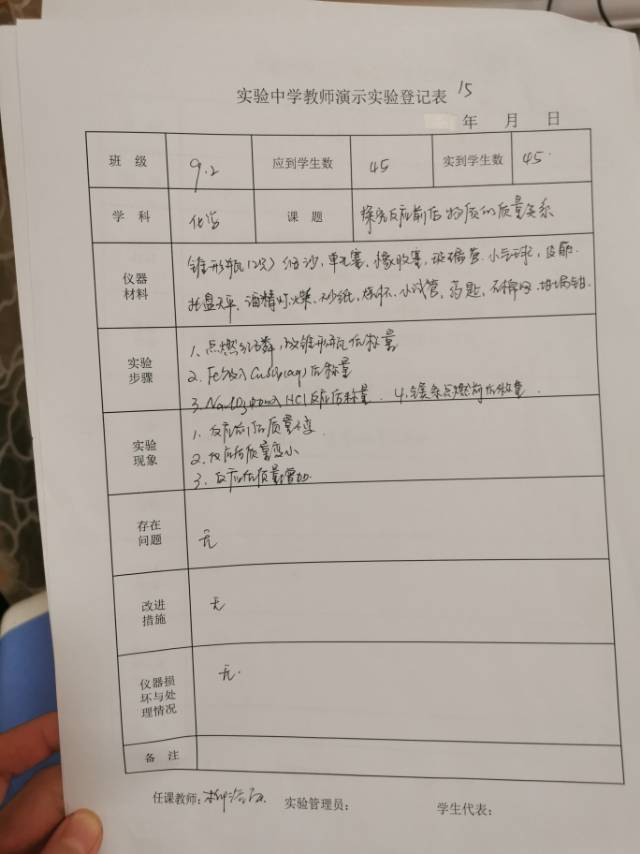 实验中学教师演示实验登记表 15
年 月 日
班 级 9.2 应到学生数 45 实到学生数 45.
学 科 化学 课 题 探究反应前后物质的质量关系
仪器材料 锥形瓶(2只) 细沙, 单孔塞, 橡胶塞, 玻璃管. 小气球, 白磷.
托盘天平、酒精灯, 火柴、砂纸, 烧杯、小试管, 药匙, 石棉网, 坩埚钳.
实验步骤 1、点燃红磷, 放锥形瓶后称量
2、Fe放入CuSO4(aq)后称量
3、Na2CO3加入HCl反应后称量. 4、镁条点燃前后称量.
实验现象 1、反应前后质量不变.
2、反应后质量变小
3、反应后质量增加.
存在问题 无
改进措施 无
仪器损坏与处理情况 无.
备 注
任课教师: 实验管理员: 学生代表: